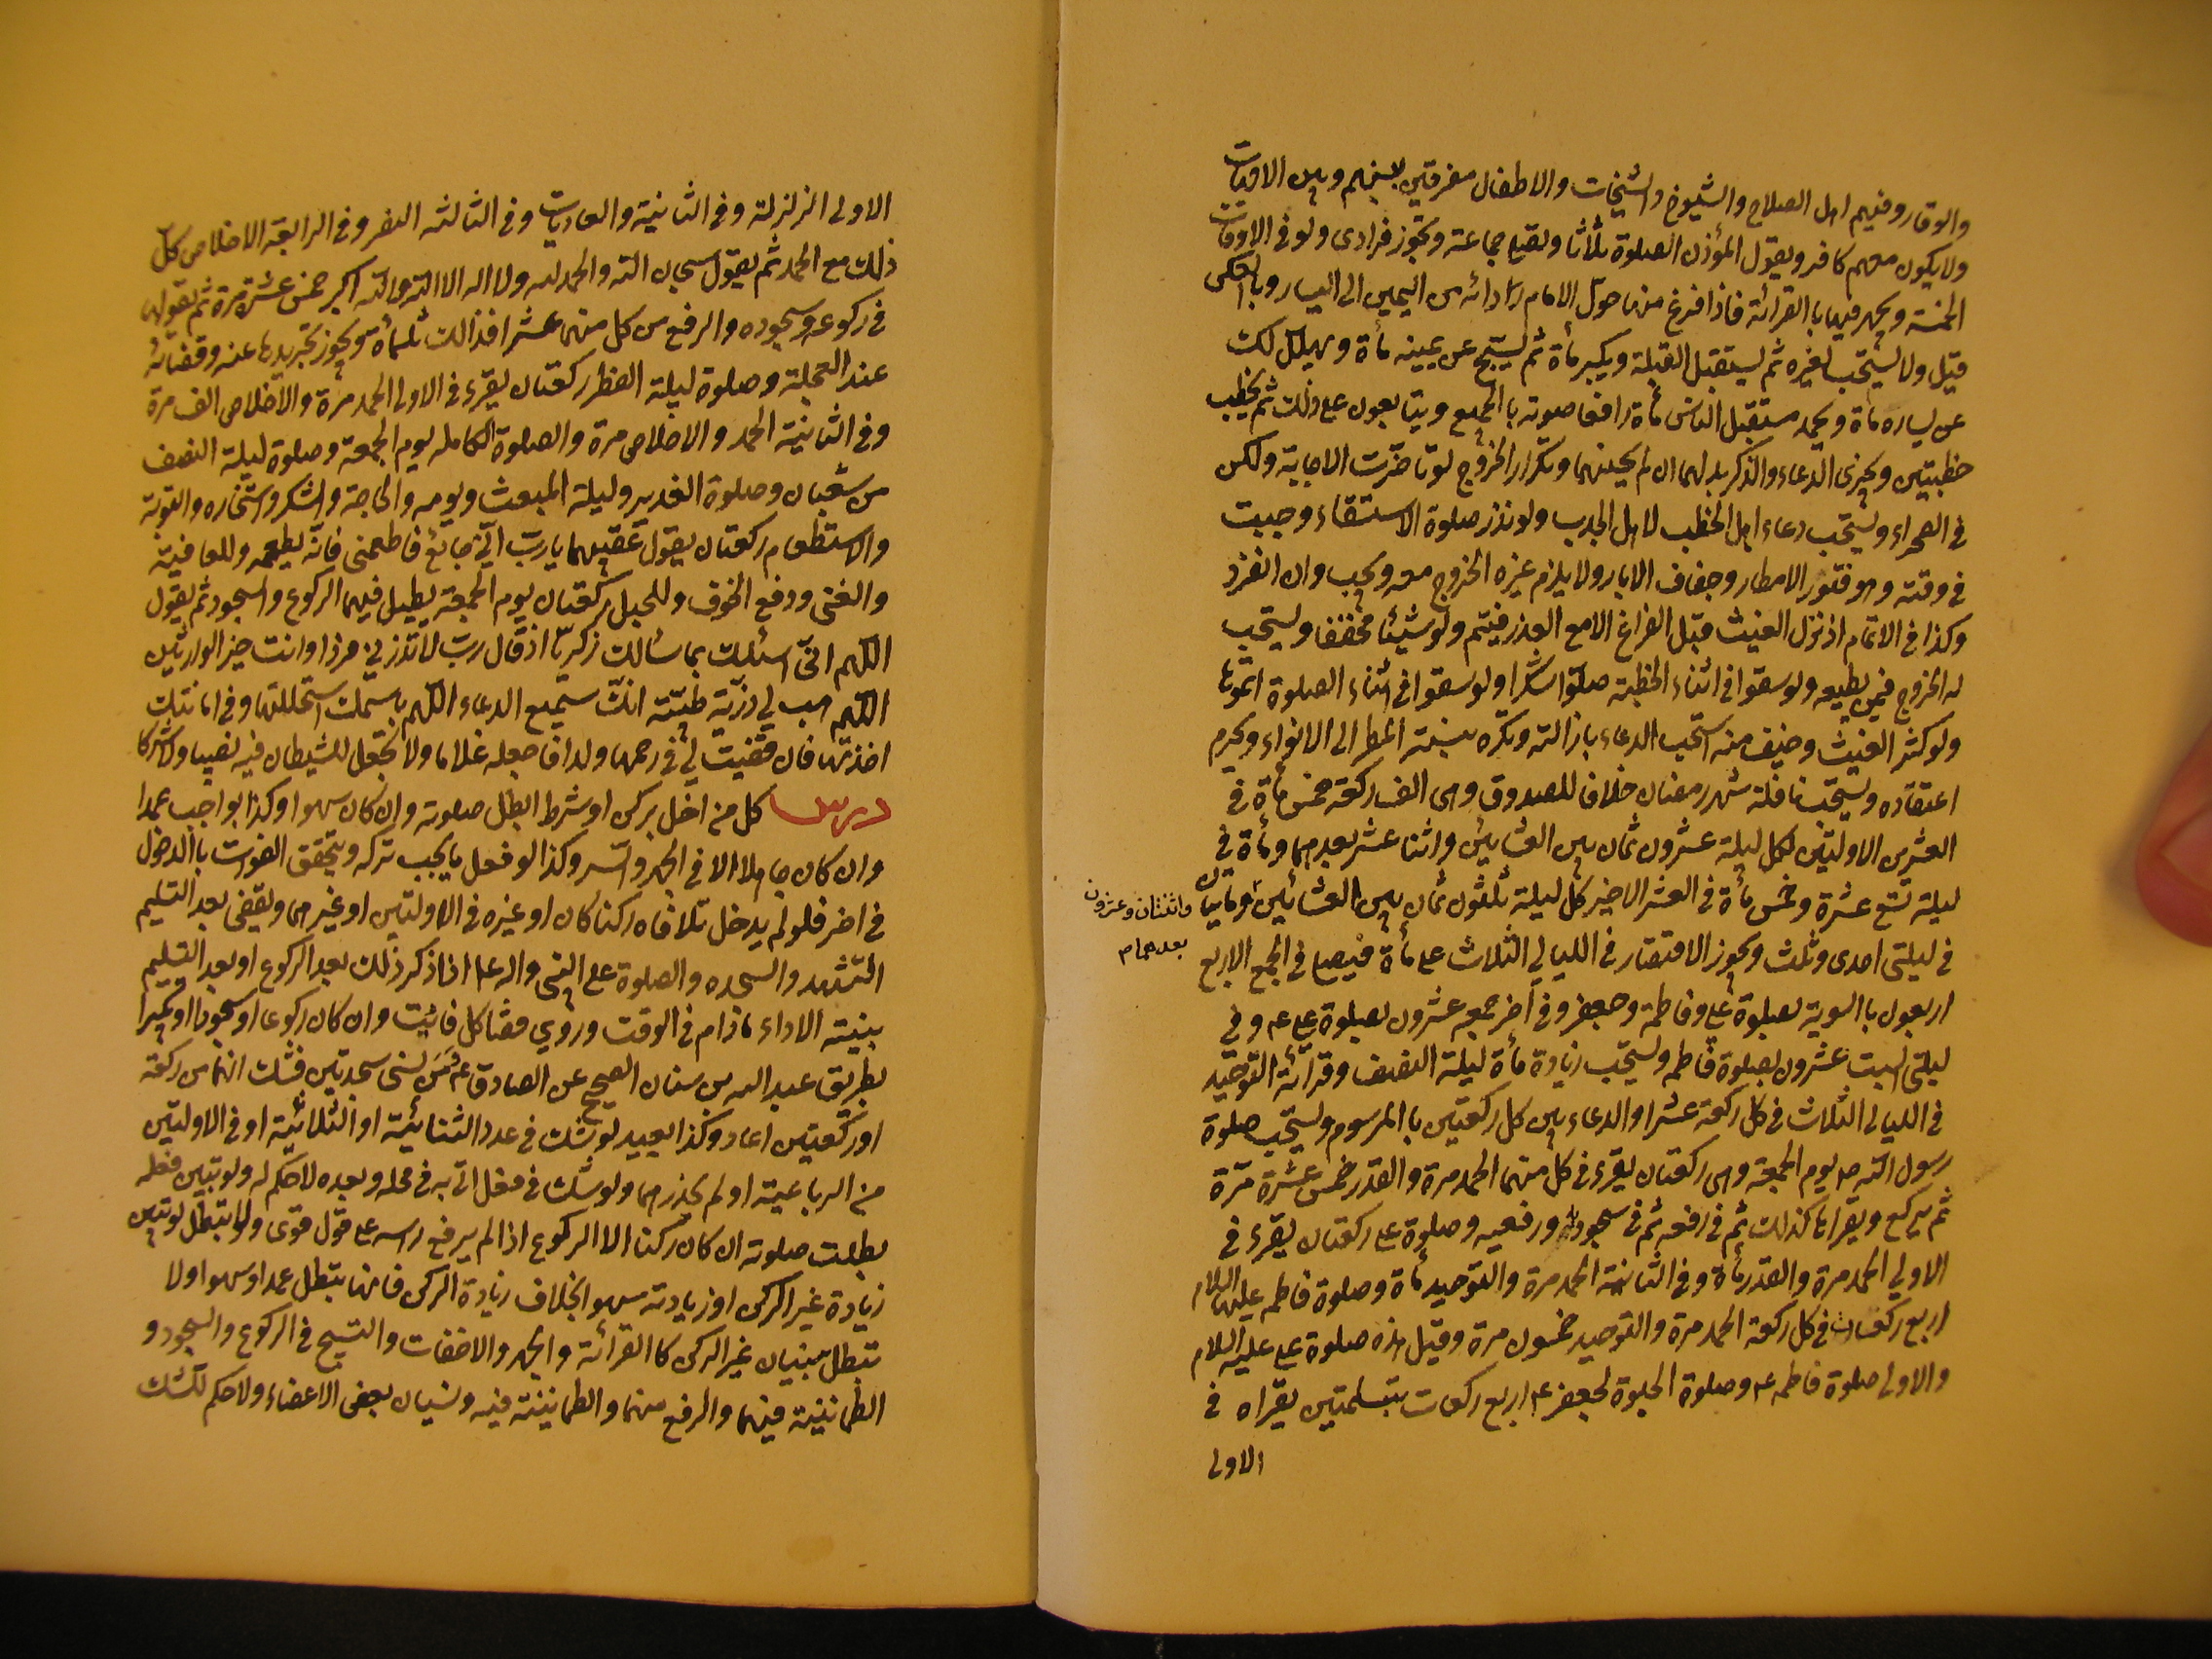 والوقار وفيهم اهل الصلاح والشيوخ والشيخات والاطفال مفرقين بينهم وبين الامهات
ولا يكون معهم كافر ويقول المؤذن الصلوة ثلاثا ويصلي جماعة وتجوز فرادى ولو في الاوقات
الخمسة ويجهر فيها با القرائة فاذا فرغ منها حول الامام ردائه من اليمين الى اليسار وبا لعكس
قيل ولا يستحب لغيره ثم يستقبل القبلة ويكبر مأة ثم يسبح عن يمينه مأة ويهلل كك
عن يساره مأة ويحمد مستقبل الناس مأة رافعا صوته با الجميع ويتابعون على ذلك ثم يخطب
خطبتين ويجزى الدعاء والذكر بدلهما ان لم يحسنهما وتكرار الخروج لو تاخرت الاجابة ولكن
في الصحراء ويستحب دعاء اهل الخطب لاهل الجدب ولو نذر صلوة الاستسقاء وجبت
في وقته وهو فتور الامطار وجفاف الابار ولا يلزم غيره الخروج معه ويجب وان انفرد
وكذا في الاتمام اذ نزل الغيث قبل الفراغ الا مع العذر فيتم ولو شيئا مخففا ويستحب
له الخروج فيمن يطيعه ولو سقوا في اثناء الخطبة صلوا شكرا ولو سقوا في اثناء الصلوة اتموها
ولو كثر الغيث وخيف منه استحب الدعاء بازالته ويكره نسبة المطر الى الانواء ويحرم
اعتقاده ويستحب نافلة شهر رمضان خلافا للصدوق وهى الف ركعة خمس مأة في
العشرين الاولتين لكل ليلة عشرون ثمان بين العشائين واثنا عشر بعدهما ومأة في
ليلة تسع عشرة وخمس مأة في العشر الاخير كل ليلة ثلثون ثمان بين العشائين ومأتان
واثنتان وعشرون
بعدهما م
في ليلتى احدى وثلث ويجوز الاقتصار في الليالي الثلاث على مأة فيصلي في الجمع الاربع
اربعون با السوية بصلوة علي وفاطمة وجعفر وفي اخر جمعه عشرون بصلوة علي ع وفي
ليلتى السبت عشرون بصلوة فاطمه ويستحب زيادة مأة ليلة النصف وقرائة التوحيد
في الليالي الثلاث في كل ركعة عشرا والدعاء بين كل ركعتين با المرسوم ويستحب صلوة
رسول الله ص يوم الجمعة وهى ركعتان يقرء في كل منهما الحمد مرة والقدر خمس عشرة مرة
ثم يركع ويقراها كذلك ثم في رفعه ثم في سجوديه ورفعيه وصلوة علي ركعتان يقرء في
الاولي الحمد مرة والقدر مأة وفي الثانية الحمد مرة والتوحيد مأة وصلوة فاطمه عليها السلام
اربع ركعات في كل ركعة الحمد مرة والتوحيد خمسون مرة وقيل هذه صلوة علي عليه السلام
والاولى صلوة فاطمه ع وصلوة الحبوة لجعفر ع اربع ركعات بتسلمتين يقراه في
الاولى
الاولى الزلزلة وفي الثانية والعاديات وفي الثالثه النصر وفي الرابعة الاخلاص كل
ذلك مع الحمد ثم يقول سبحان الله والحمد لله ولا اله الا الله والله اكبر خمس عشرة مرة ثم يقولها
في ركوعه وسجوده والرفع من كل منهما عشرا فذالك ثلثمأة ويجوز تجريدها عنه وقضائه
عند العجلة وصلوة ليلة الفطر ركعتان يقرء في الاولى الحمد مرة والاخلاص الف مرة
وفي الثانية الحمد والاخلاص مرة والصلوة الكامله يوم الجمعة وصلوة ليلة النصف
من شعبان وصلوة الغدير وليلة المبعث ويومه والحاجة والشكر واستخاره والتوبة
والاستطعام ركعتان يقول عقيبهما يا رب اني جائع فاطعمنى فانه يطعمه وللعافية
والغنى ودفع الخوف وللحبل ركعتان يوم الجمعة يطيل فيهما الركوع والسجود ثم يقول
اللهم اني اسئلك بما سألك زكريا اذ قال رب لا تذرني فردا وانت خير الوارثين
اللهم هب لي ذرية طيبة انك سميع الدعاء اللهم باسمك استحللتها وفي امانتك
اخذتها فان قضيت لي في رحمها ولدا فاجعله غلاما ولا تجعل للشيطان فيه نصيبا ولا شركا
درس كل من اخل بركن او شرط ابطل صلوته وان كان سهوا وكذا بواجب عمدا
وان كان جاهلا الا في الجهر والسر وكذا لو فعل ما يجب تركه ويتحقق الفوات باالدخول
في اخر فلو لم يدخل تلافاه ركنا كان او غيره في الاولتين او غيرهما ويقضى بعد التسليم
التشهد والسجده والصلوة على النبي واله ع اذا ذكر ذلك بعد الركوع او بعد التسليم
بنية الاداء مادام في الوقت وروي قضا كل فائت وان كان ركوعا او سجودا او تكبيرا
بطريق عبد الله بن سنان الصحيح عن الصادق ع فمن نسى سجدتين فشك انهما من ركعة
او ركعتين اعاد وكذا يعيد لو شك في عدد الثنائية او الثلاثية او في الاولتين
من الرباعية او لم يحذرهما ولو شك في فعل اتى به في محله وبعده لا حكم له ولو تبين فعله
بطلت صلوته ان كان ركنا الا الركوع اذا لم يرفع راسه على قول قوى ولا تبطل لو تبين
زيادة غير الركن او زيادته سهوا بخلاف زيادة الركن فانها تبطل عمدا وسهوا ولا
تبطل بنسيان غير الركن كا القرائة والجهر والاخفات والتسبيح في الركوع والسجود و
الطمانينة فيهما والرفع منهما والطمانينة فيه ونسيان بعض الاعضاء ولا حكم لشك